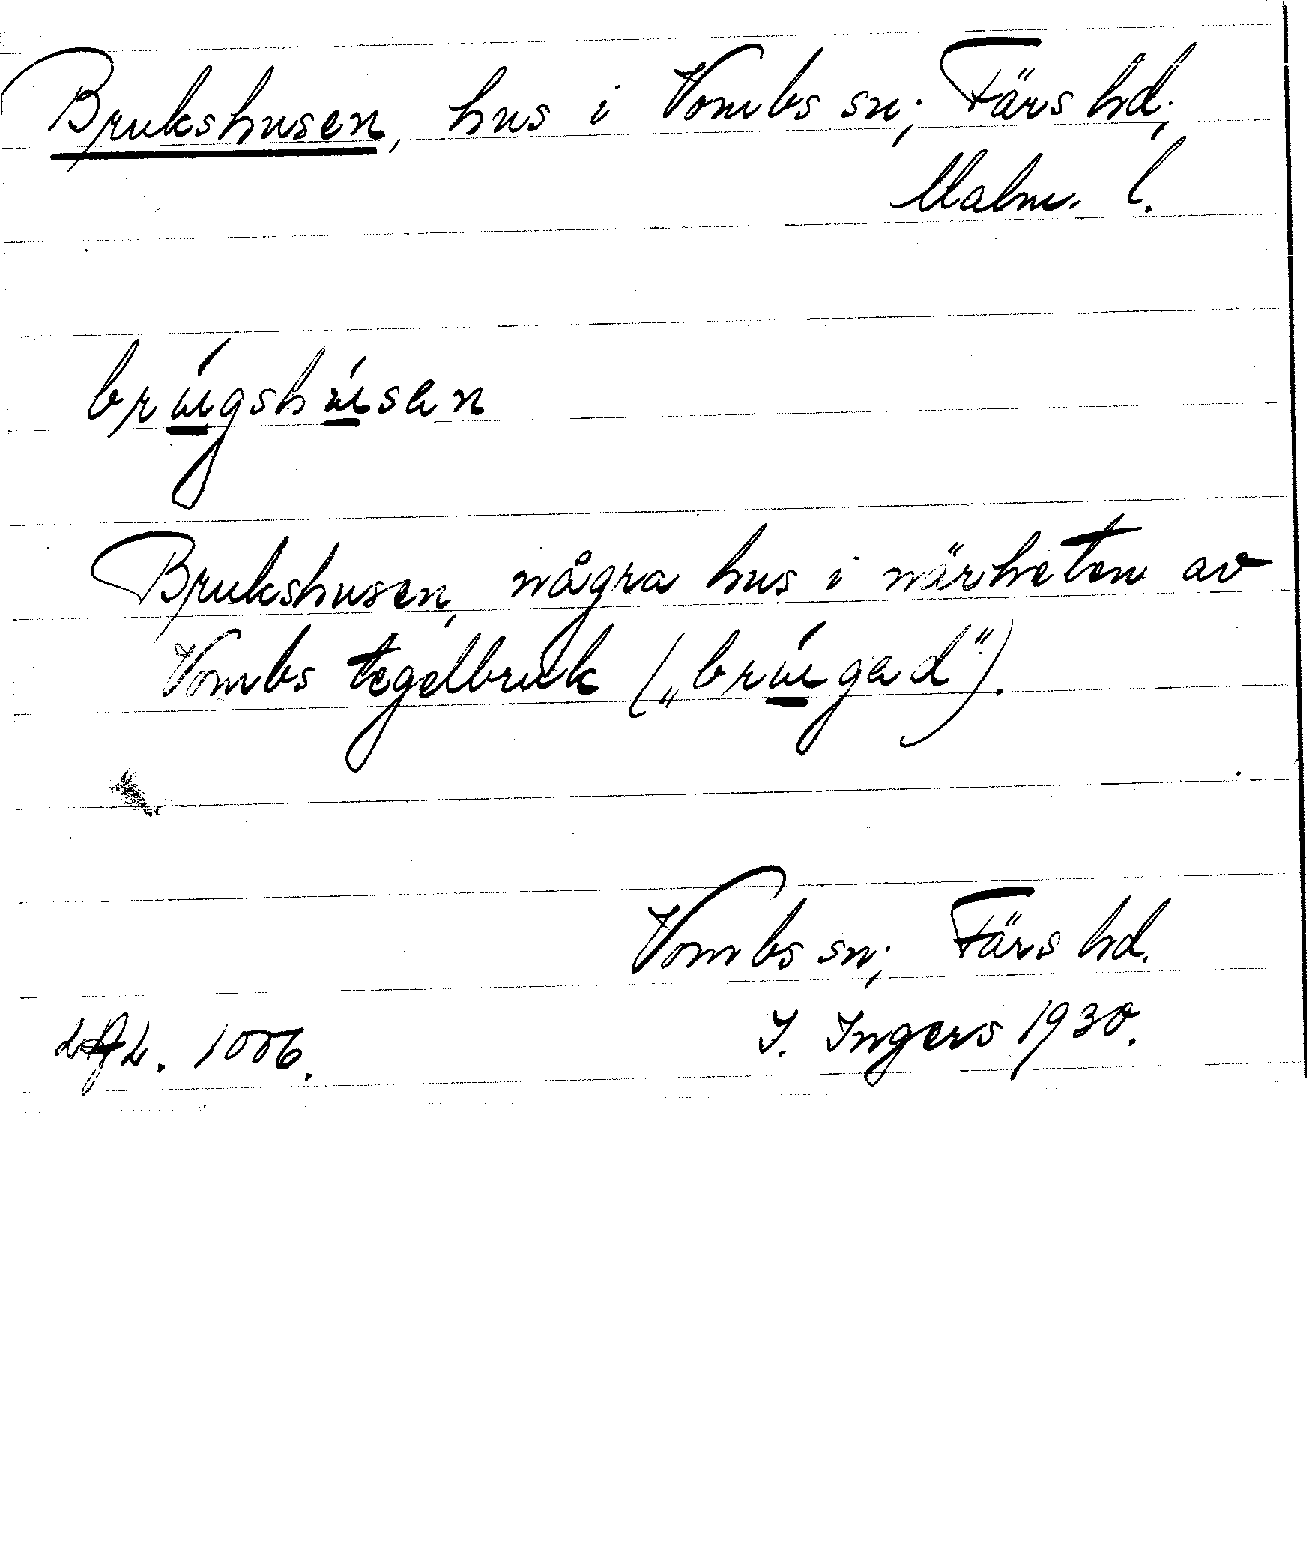 Brukshusen, hus i Vombs sn; Färs hd;
Malm. l.
brúgshúsen
Brukshusen, några hus i närheten av
Vombs tegelbruk („brúgad").
Vombs sn; Färs hd.
I. Ingers 1930.
1006.